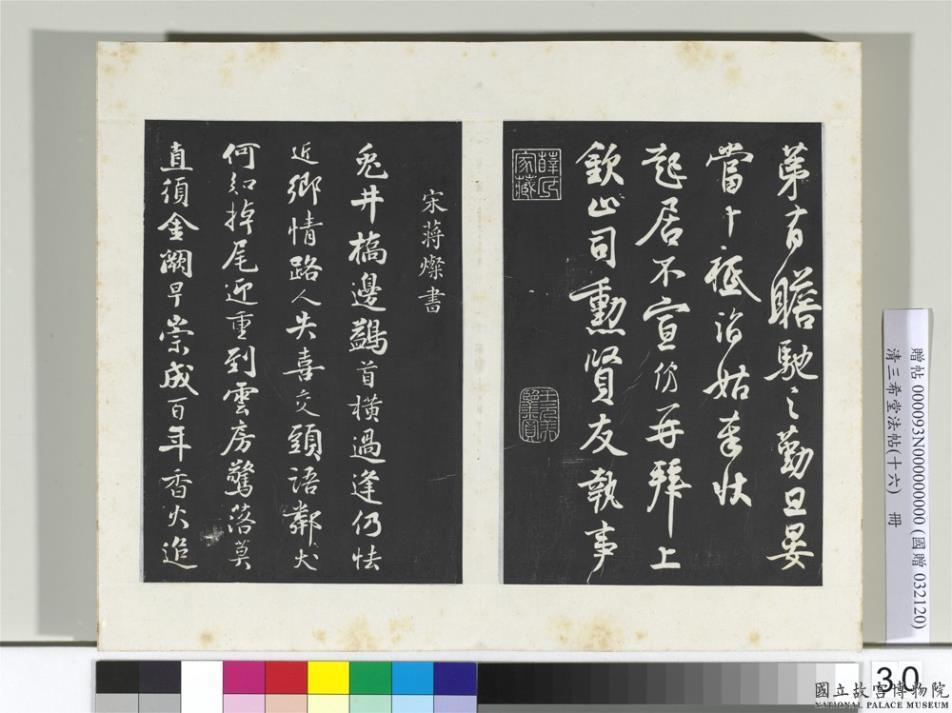 弟有瞻馳之勤旦晏
當十袛詣姑奉狀
起居不宣仿再拜上
欽止司勳賢友執事
薛氏家藏
王元美鑒賞
宋蔣燦書
兎井橋邊鷁首橫過逢仍怯
近鄉情路人失喜交頭語鄰犬
何知掉尾迎重到雲房驚落莫
直須金闕早崇成百年香火追
贈帖 000093N000000000 (國贈 032120)
清三希堂法帖(十六) 冊
30
國立故宮博物院
NATIONAL PALACE MUSEUM